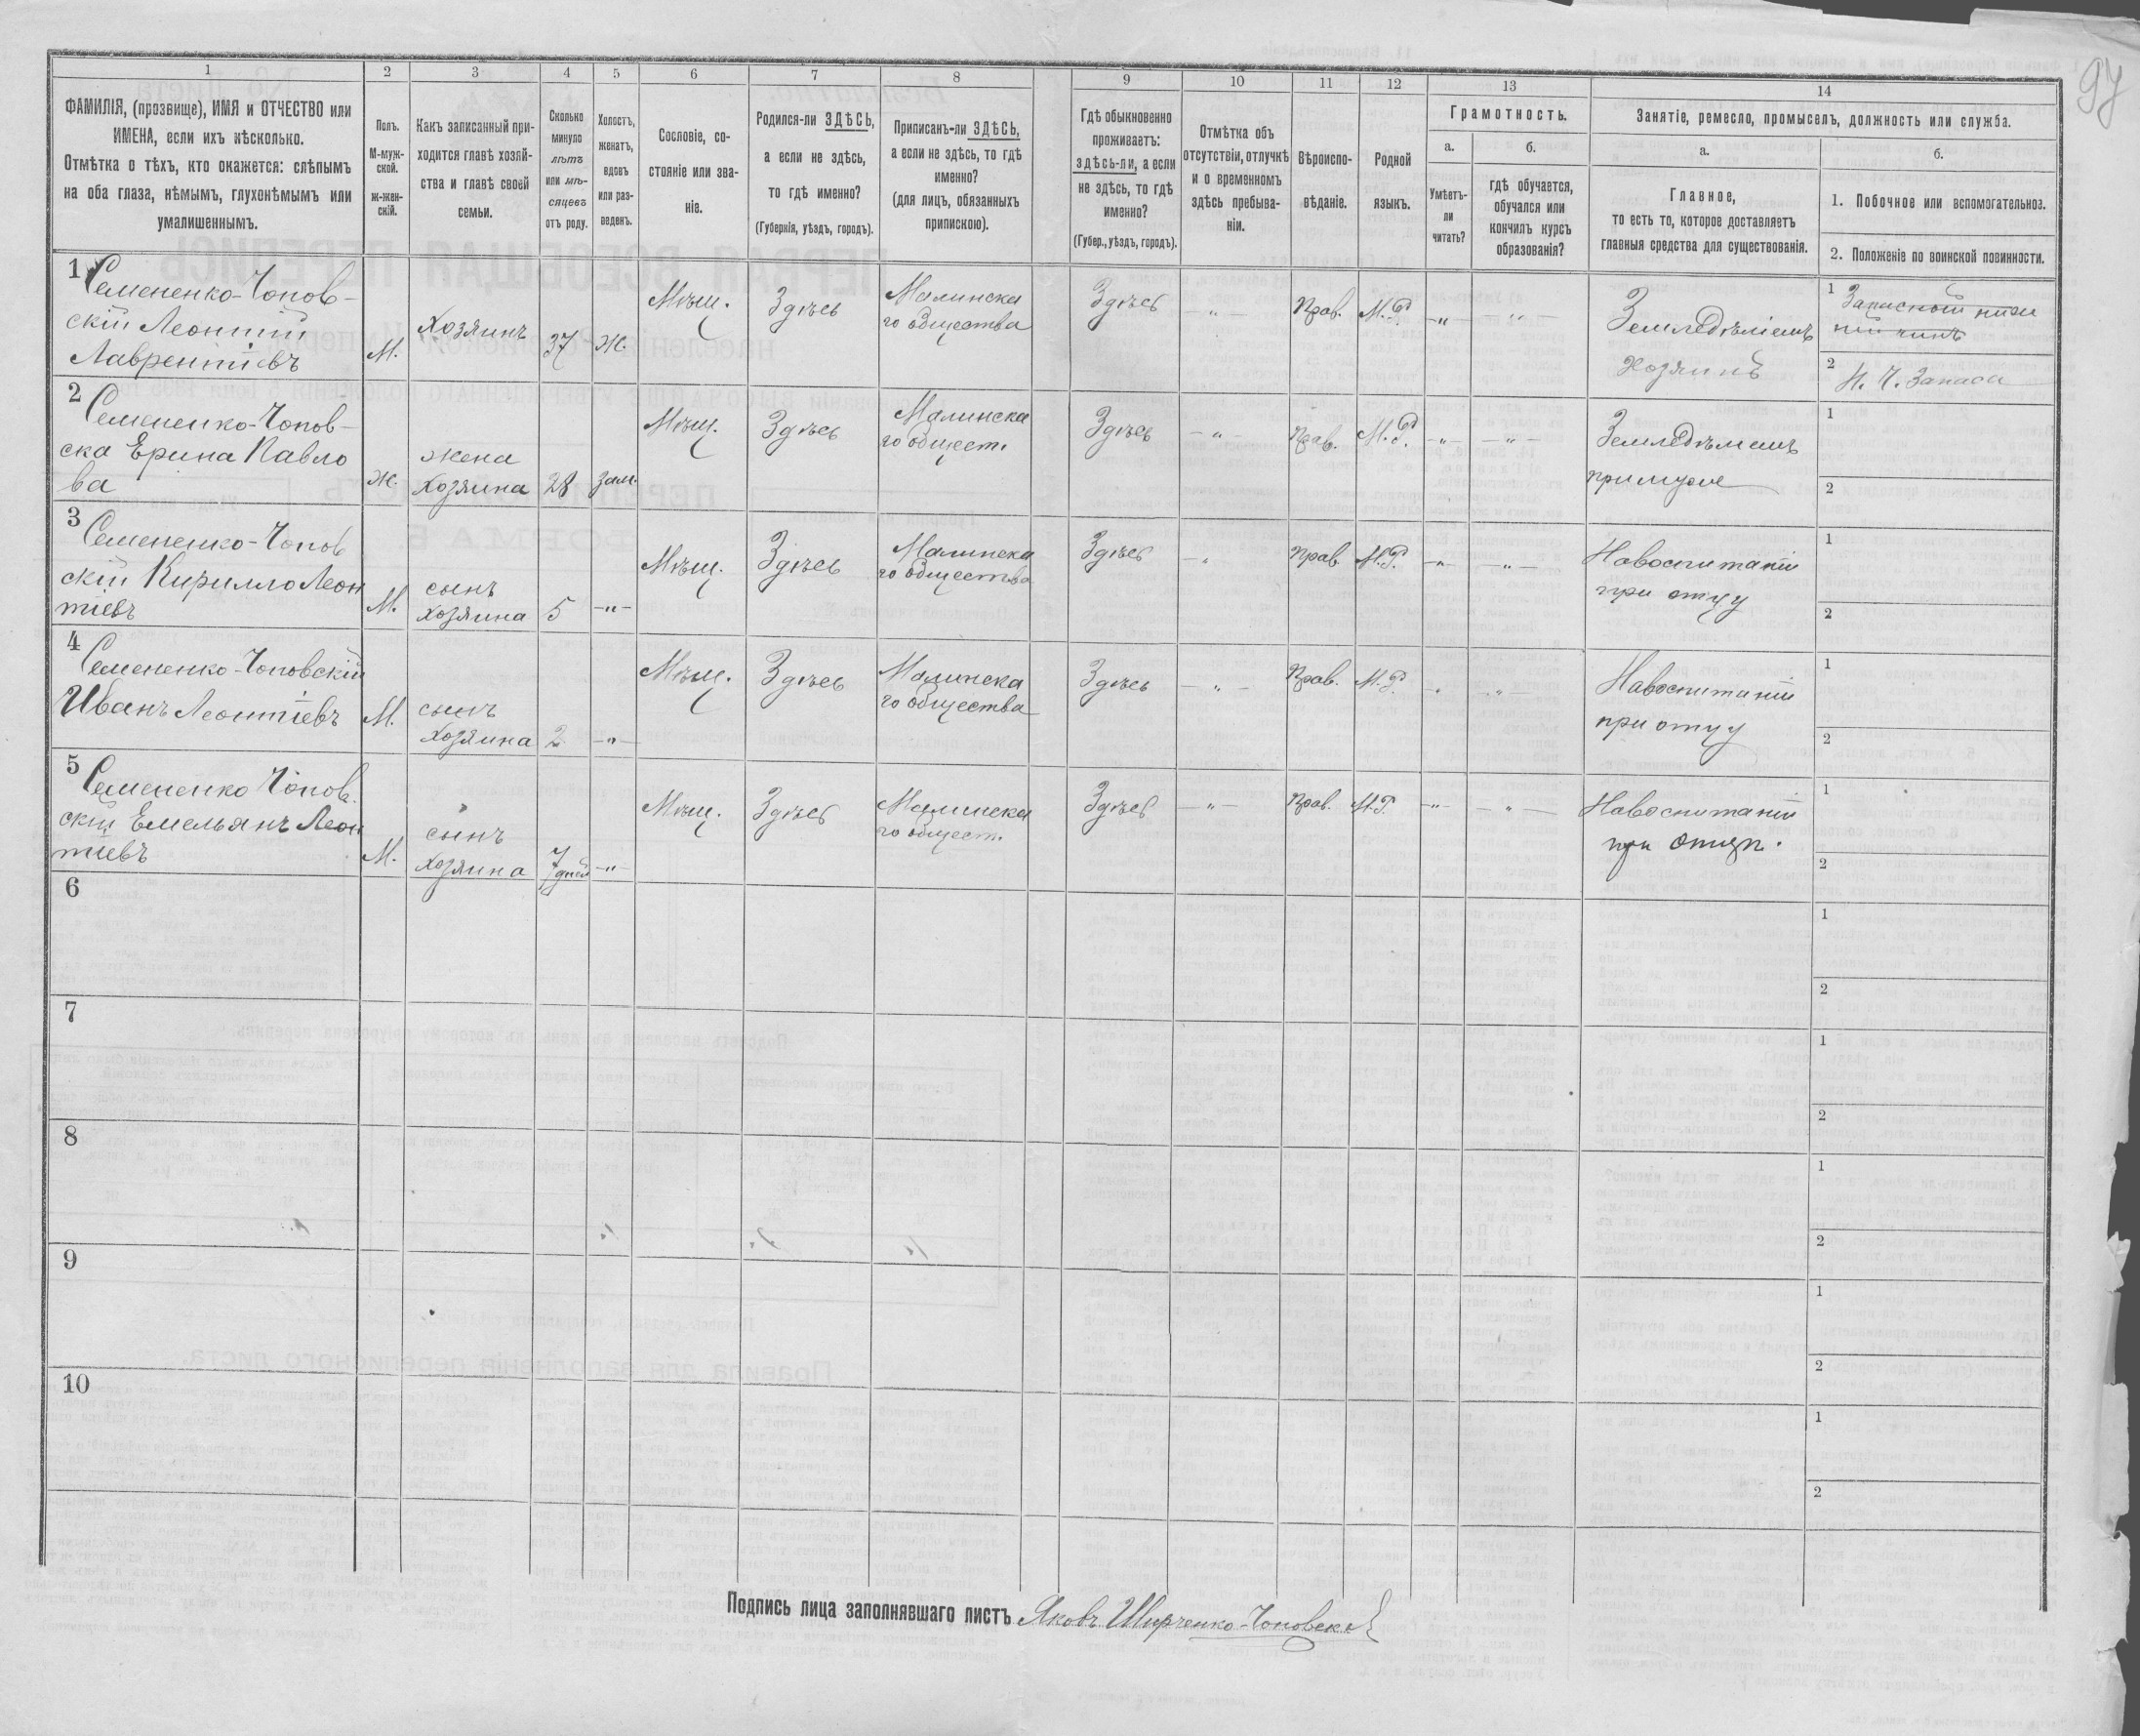 97
1 2 3 4 5 6 7 8 9 10 11 12 13 14
ФАМИЛІЯ, (прозвище), ИМЯ и ОТЧЕСТВО или
ИМЕНА, если ихъ нѣсколько.
Отмѣтка о тѣхъ, кто окажется: слѣпымъ
на оба глаза, нѣмымъ, глухонѣмымъ или
умалишеннымъ.
Полъ.
М-муж-
ской.
ж-жен-
скій.
Какъ записанный при-
ходится главѣ хозяй-
ства и главѣ своей
семьи.
Сколько
минуло
лѣтъ
или мѣ-
сяцевъ
отъ роду.
Холостъ,
женатъ,
вдовъ
или раз-
веденъ.
Сословіе, со-
стояніе или зва-
ніе.
Родился-ли ЗДѢСЬ,
а если не здѣсь,
то гдѣ именно?
(Губернія, уѣздъ, городъ).
Приписанъ-ли ЗДѢСЬ,
а если не здѣсь, то гдѣ
именно?
(для лицъ, обязанныхъ
припискою).
Гдѣ обыкновенно
проживаетъ:
здѣсь-ли, а если
не здѣсь, то гдѣ
именно?
(Губер., уѣздъ, городъ).
Отмѣтка объ
отсутствіи, отлучкѣ
и о временномъ
здѣсь пребыва-
ніи.
Вѣроиспо-
вѣданіе.
Родной
языкъ.
Грамотность.
а.
Умѣетъ-
ли
читать?
б.
гдѣ обучается,
обучался или
кончилъ курсъ
образованія?
Занятіе, ремесло, промыселъ, должность или служба.
а.
Главное,
то есть то, которое доставляетъ
главныя средства для существованія.
б.
1. Побочное или вспомогательное.
2. Положеніе по воинской повинности.
1 Семененко-Чопов-
скій Леонтій
Лаврентіевъ
М.
Хозяинъ
37
Ж.
Мѣщ.
Здѣсь
Малинска
го общества
Здѣсь
—„—
Прав.
М.Р.
—„—
—„—
Земледѣліемъ
Хозяинъ
1 Запасной ниж
ній чинъ
2 Н. Ч. Запаса
2 Семененко-Чопов-
ска Ерина Павло
ва
Ж.
жена
Хозяина
28
зам.
Мѣщ.
Здѣсь
Малинска
го общест.
Здѣсь
—„—
Прав.
М.Р.
—„—
—„—
Земледѣліемъ
при муже
1
2
3 Семененко-Чопов
скій Кирилло Леон
тіевъ
М.
сынъ
хозяина
5
—„—
Мѣщ.
Здѣсь
Малинска
го общества
Здѣсь
—„
Прав.
М.Р.
—„—
—„—
На воспитаніи
при отцу
1
2
4 Семененко-Чоповскій
Иванъ Леонтіевъ
М.
сынъ
Хозяина
2
—„—
Мѣщ.
Здѣсь
Малинска
го общества
Здѣсь
—„—
Прав.
М.Р.
„
„—
На воспитаніи
при отцу
1
2
5 Семененко Чопов.
скій Емельянъ Леон
тіевъ
М.
сынъ
Хозяина
7 дней
—„—
Мѣщ.
Здѣсь
Малинска
го общест.
Здѣсь
—„—
Прав.
М.Р.
—„—
—„—
На воспитаніи
при отцѣ.
1
2
6
1
2
7
1
2
8
1
2
9
1
2
10
1
2
Подпись лица заполнявшаго листъ